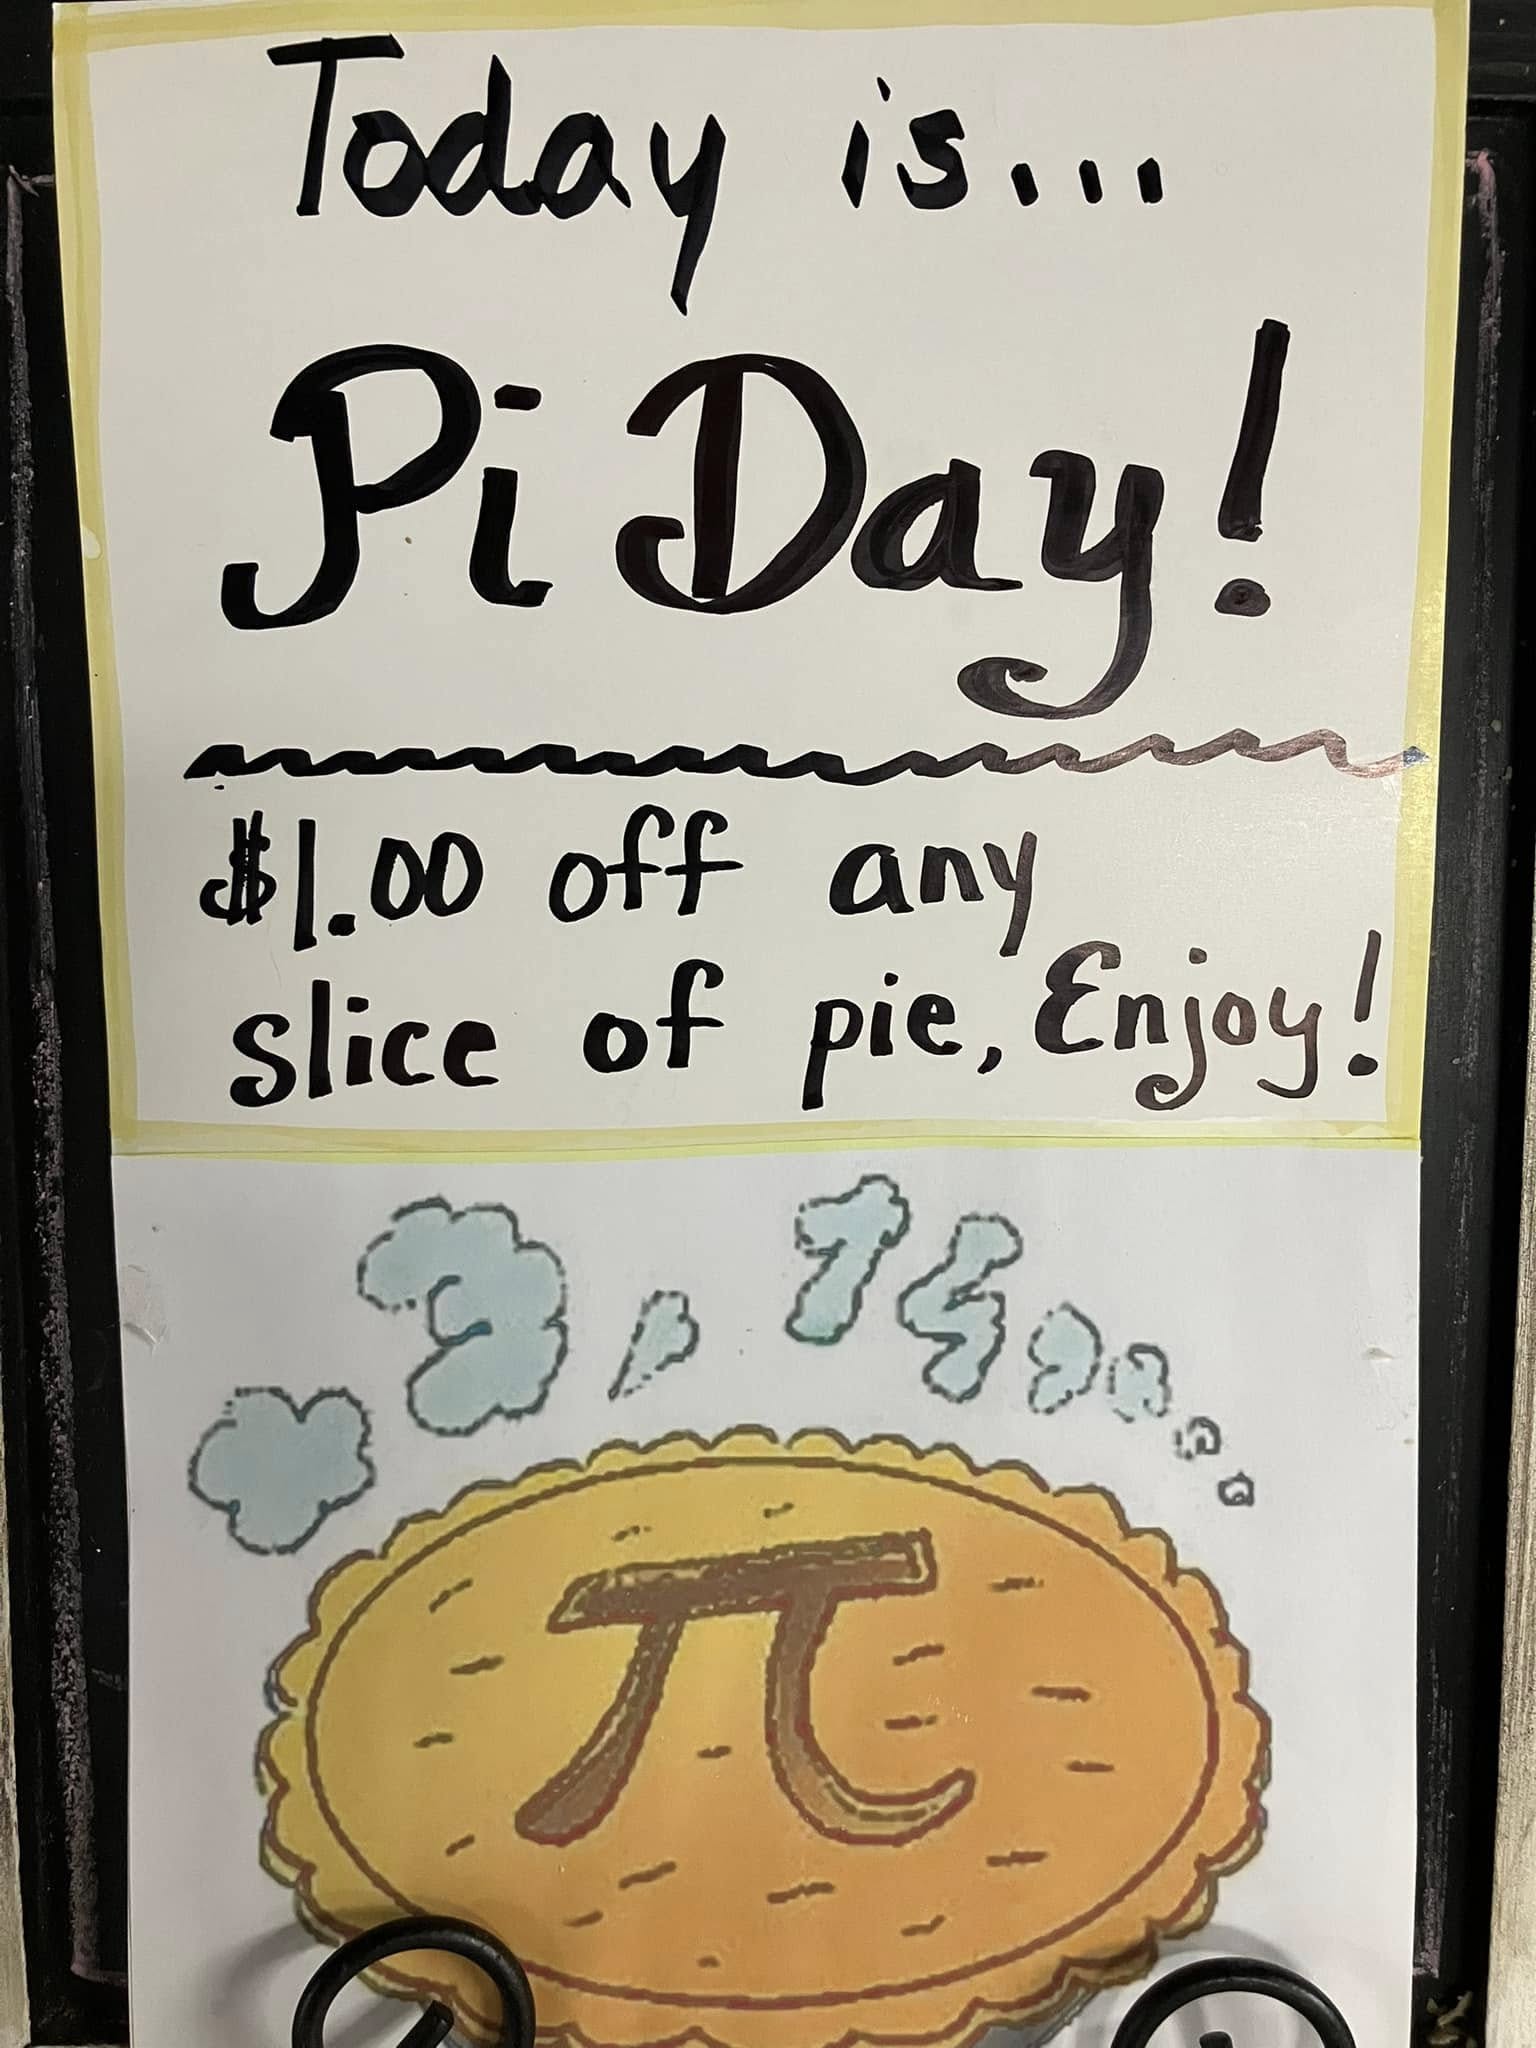 Today is...
Pi Day!
$1.00 off any
slice of pie, Enjoy!
π